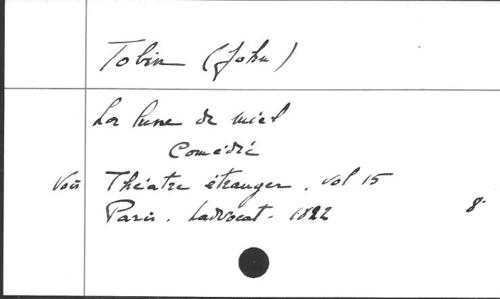 Tobin (John)
La lune de miel
Comédie
Voir Théâtre étranger. vol 15
Paris. Ladvocat. 1822 8°